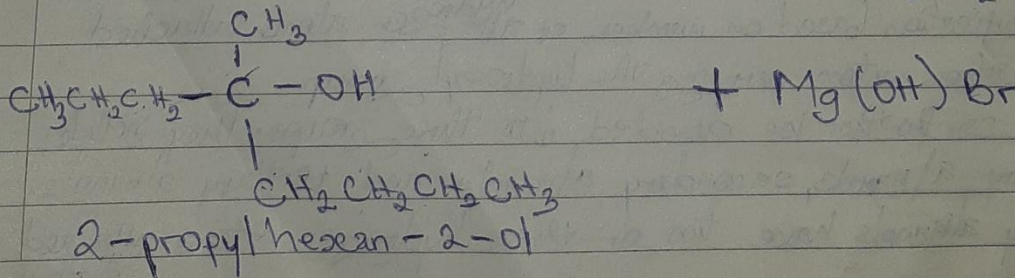 CH₃
CH₃CH₂CH₂ – C – OH + Mg(OH)Br
CH₂CH₂CH₂CH₃
2-propylhexan-2-ol